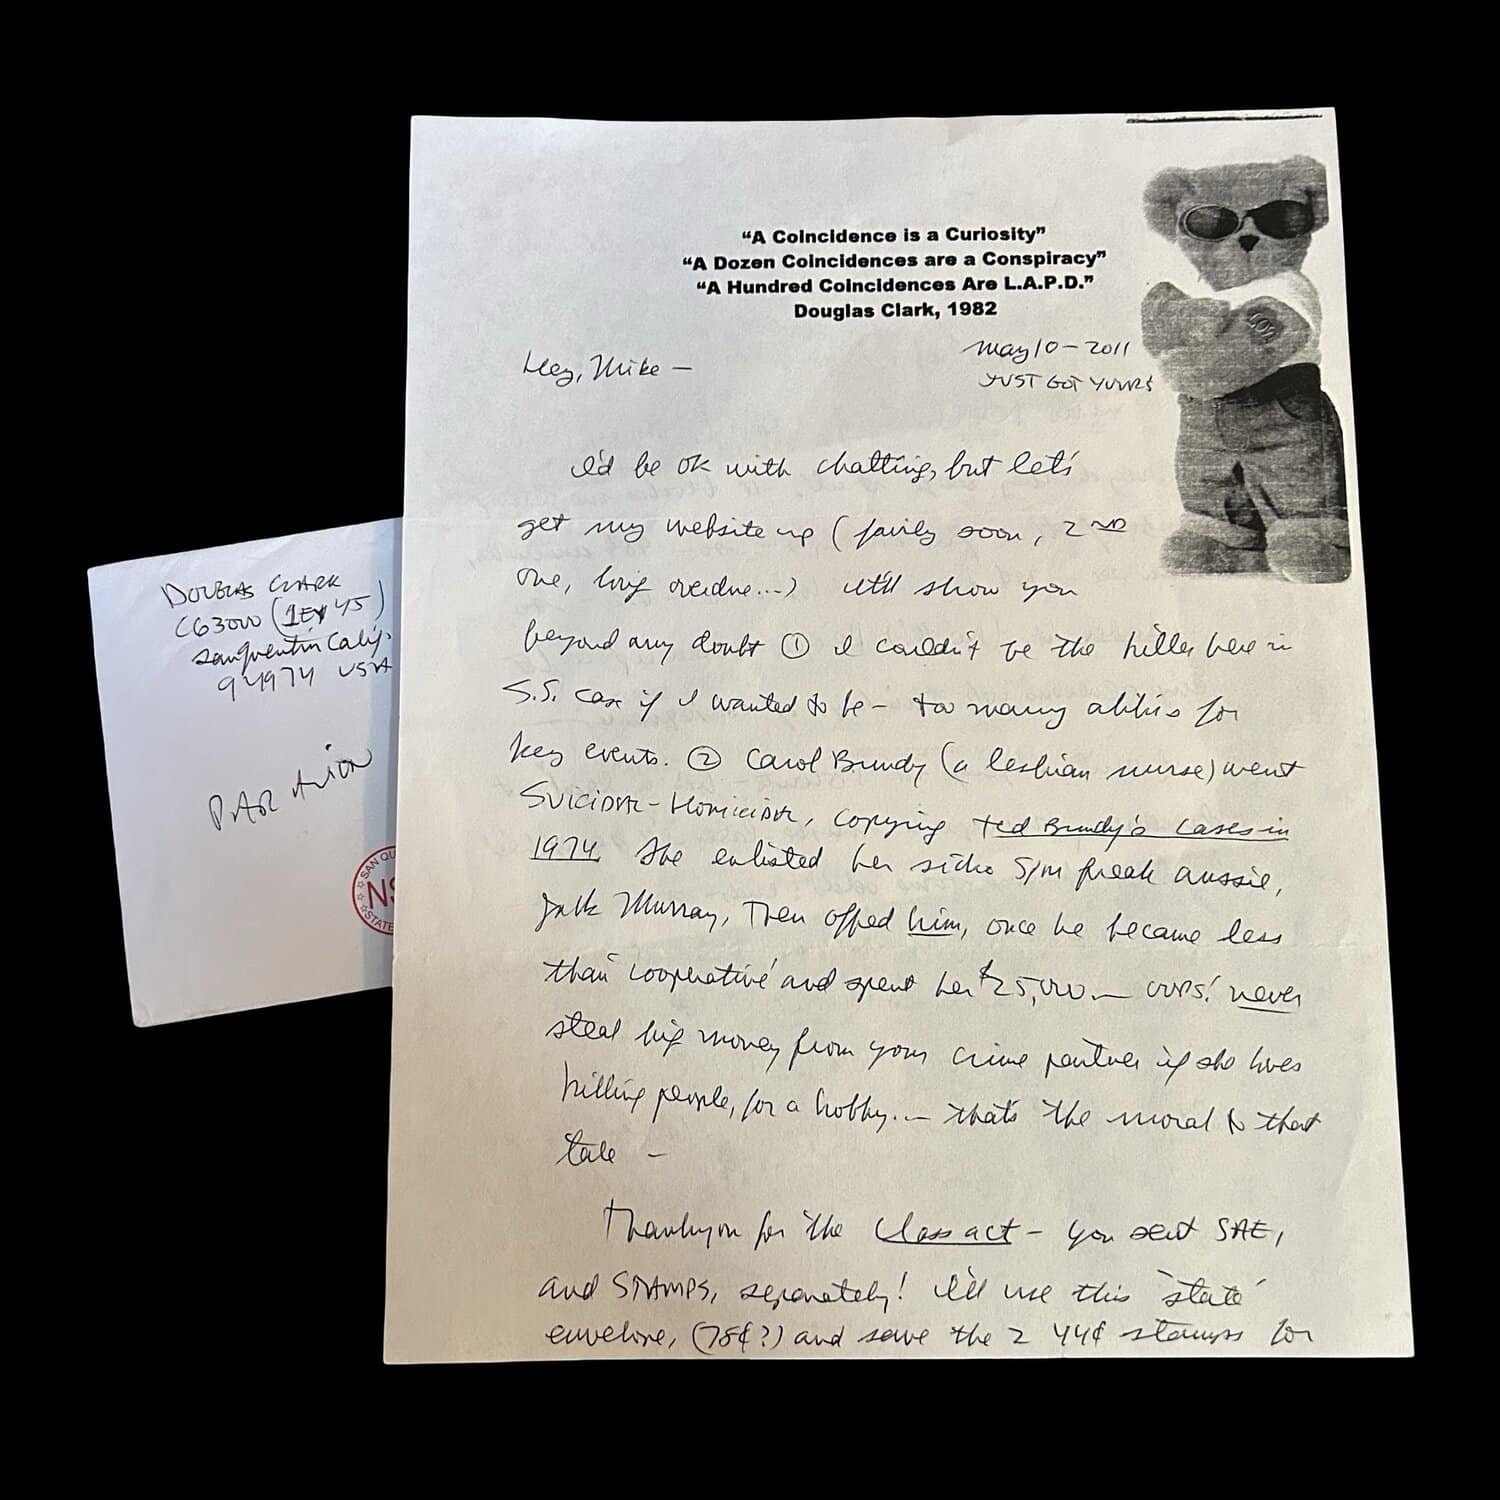 "A Coincidence is a Curiosity"
"A Dozen Coincidences are a Conspiracy"
"A Hundred Coincidences Are L.A.P.D."
Douglas Clark, 1982
May 10 - 2011
JUST GOT YOURS
Hey, Mike —
I'd be ok with chatting, but let's
get my website up (fairly soon, 2ND
one, long overdue...) It'll show you
beyond any doubt ① I couldn't be the killer here in
S.S. case if I wanted to be - too many alibis for
key events. ② Carol Bundy (a lesbian nurse) went
SUICIDAL-HOMICIDAL, copying Ted Bundy's cases in
1974. She enlisted her sicko S/M freak aussie,
Jack Murray, Then offed him, once he became less
than 'cooperative' and spent her $25,000 — OOPS! never
steal big money from your crime partner if she loves
killing people, for a hobby... that's the moral to that
tale —
Thankyou for the class act - you sent SAE,
and STAMPS, separately! I'll use this 'state'
envelope, (78¢?) and save the 2 44¢ stamps for
DOUGLAS CLARK
C63000 (1EY45)
San Quentin Calif.
94974 USA
PAR AVION
SAN QU
NS
STATE
LOVE